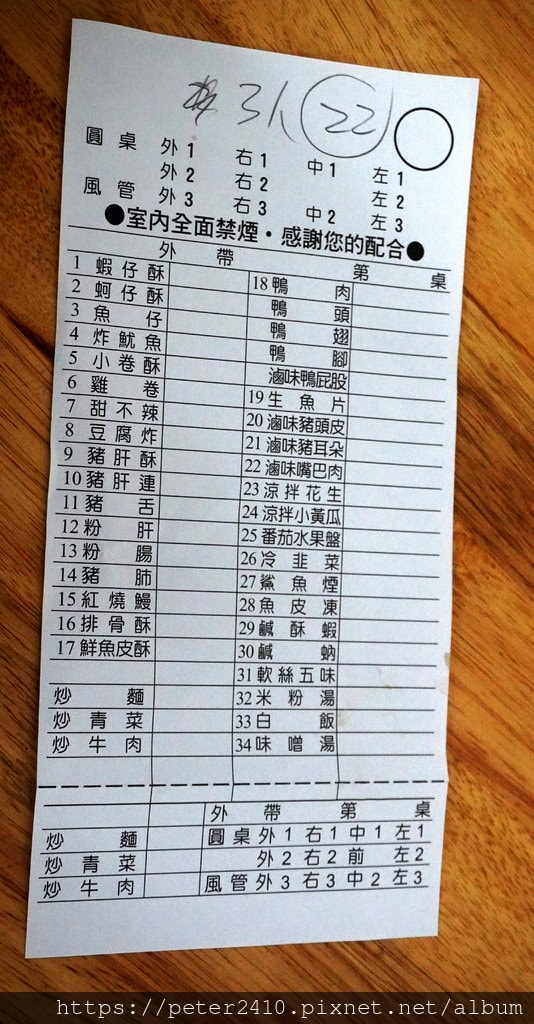 3人 22
圓桌 外1 右1 中1 左1
外2 右2 左2
風管 外3 右3 中2 左3
●室內全面禁煙・感謝您的配合●
外帶 第 桌
1 蝦仔酥 18 鴨肉
2 蚵仔酥 鴨頭
3 魚仔 鴨翅
4 炸魷魚 鴨腳
5 小卷酥 滷味鴨屁股
6 雞卷 19 生魚片
7 甜不辣 20 滷味豬頭皮
8 豆腐炸 21 滷味豬耳朵
9 豬肝酥 22 滷味嘴巴肉
10 豬肝連 23 涼拌花生
11 豬舌 24 涼拌小黃瓜
12 粉肝 25 番茄水果盤
13 粉腸 26 冷韭菜
14 豬肺 27 鯊魚煙
15 紅燒鰻 28 魚皮凍
16 排骨酥 29 鹹酥蝦
17 鮮魚皮酥 30 鹹蚋
31 軟絲五味
炒麵 32 米粉湯
炒青菜 33 白飯
炒牛肉 34 味噌湯
外帶 第 桌
炒麵 圓桌 外1 右1 中1 左1
炒青菜 外2 右2 前 左2
炒牛肉 風管 外3 右3 中2 左3
https://peter2410.pixnet.net/album